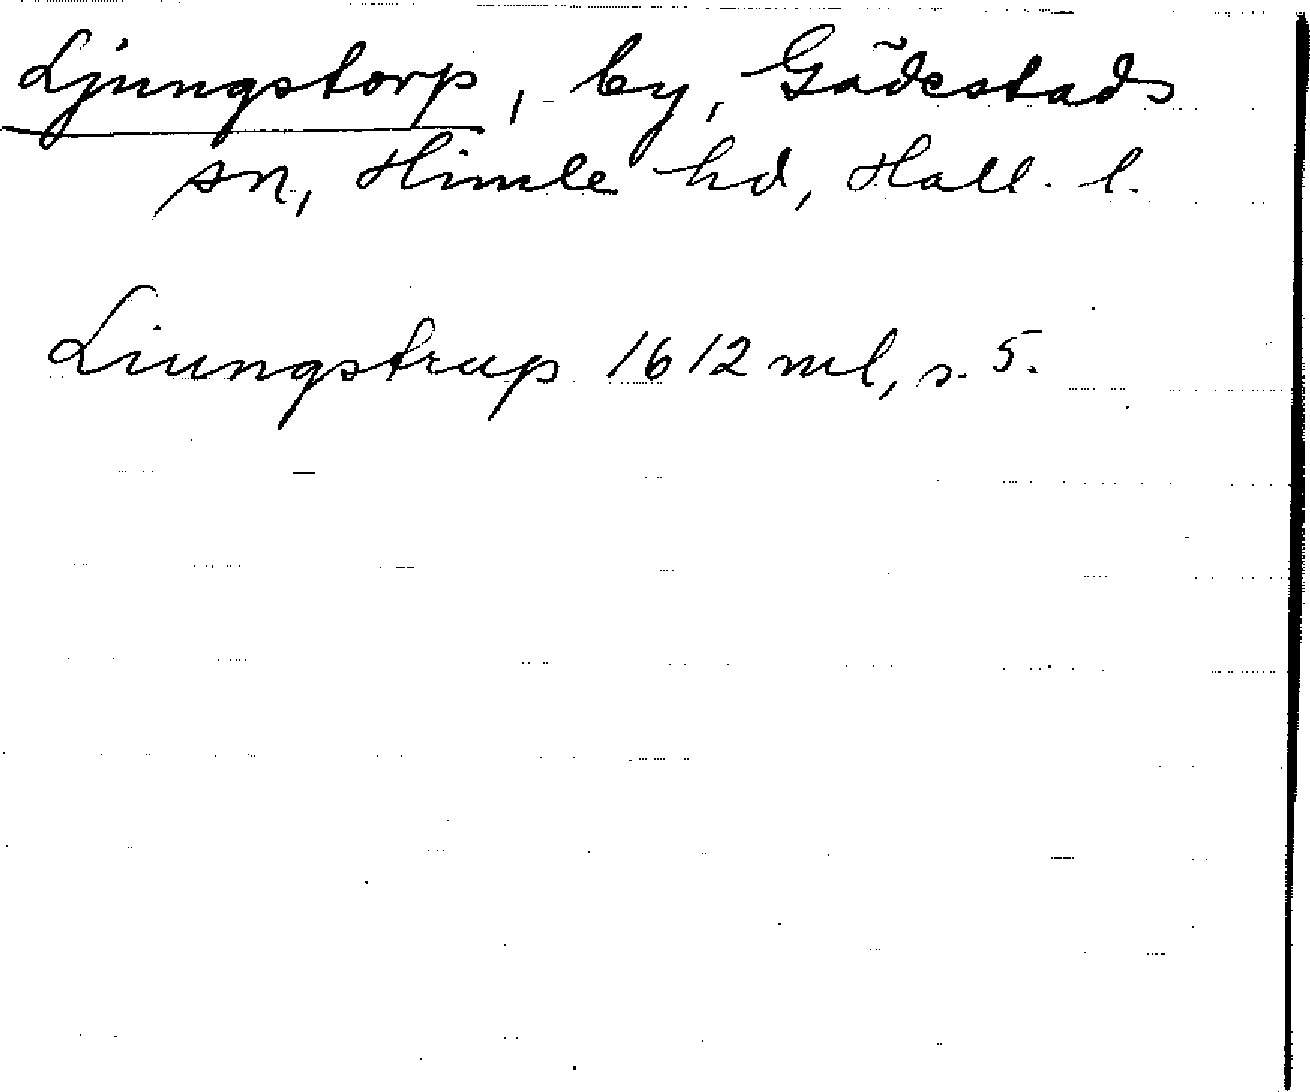 Ljungstorp, by, Gödestads
sn, Himle hd, Hall. l.
Liungstrup 1612 ml, s. 5.